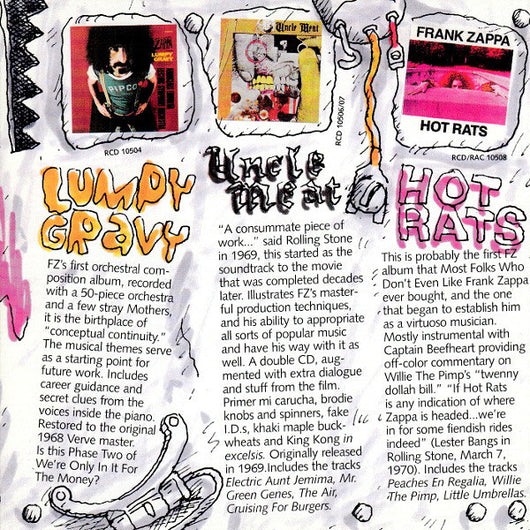 LUMPY
GRAVY
PIPCO
RCD 10504
Uncle Meat
RCD 10506/07
FRANK ZAPPA
HOT RATS
RCD/RAC 10508
LUMPY
GRAVY
FZ's first orchestral com-
position album, recorded
with a 50-piece orchestra
and a few stray Mothers,
it is the birthplace of
"conceptual continuity."
The musical themes serve
as a starting point for
future work. Includes
career guidance and
secret clues from the
voices inside the piano.
Restored to the original
1968 Verve master.
Is this Phase Two of
We're Only In It For
The Money?
Uncle
meat
"A consummate piece of
work..." said Rolling Stone
in 1969, this started as the
soundtrack to the movie
that was completed decades
later. Illustrates FZ's master-
ful production techniques,
and his ability to appropriate
all sorts of popular music
and have his way with it as
well. A double CD, aug-
mented with extra dialogue
and stuff from the film.
Primer mi carucha, brodie
knobs and spinners, fake
I.D.s, khaki maple buck-
wheats and King Kong in
excelsis. Originally released
in 1969.Includes the tracks
Electric Aunt Jemima, Mr.
Green Genes, The Air,
Cruising For Burgers.
HOT
RATS
This is probably the first FZ
album that Most Folks Who
Don't Even Like Frank Zappa
ever bought, and the one
that began to establish him
as a virtuoso musician.
Mostly instrumental with
Captain Beefheart providing
off-color commentary on
Willie The Pimp's "twenny
dollah bill." "If Hot Rats
is any indication of where
Zappa is headed...we're
in for some fiendish rides
indeed" (Lester Bangs in
Rolling Stone, March 7,
1970). Includes the tracks
Peaches En Regalia, Willie
The Pimp, Little Umbrellas.